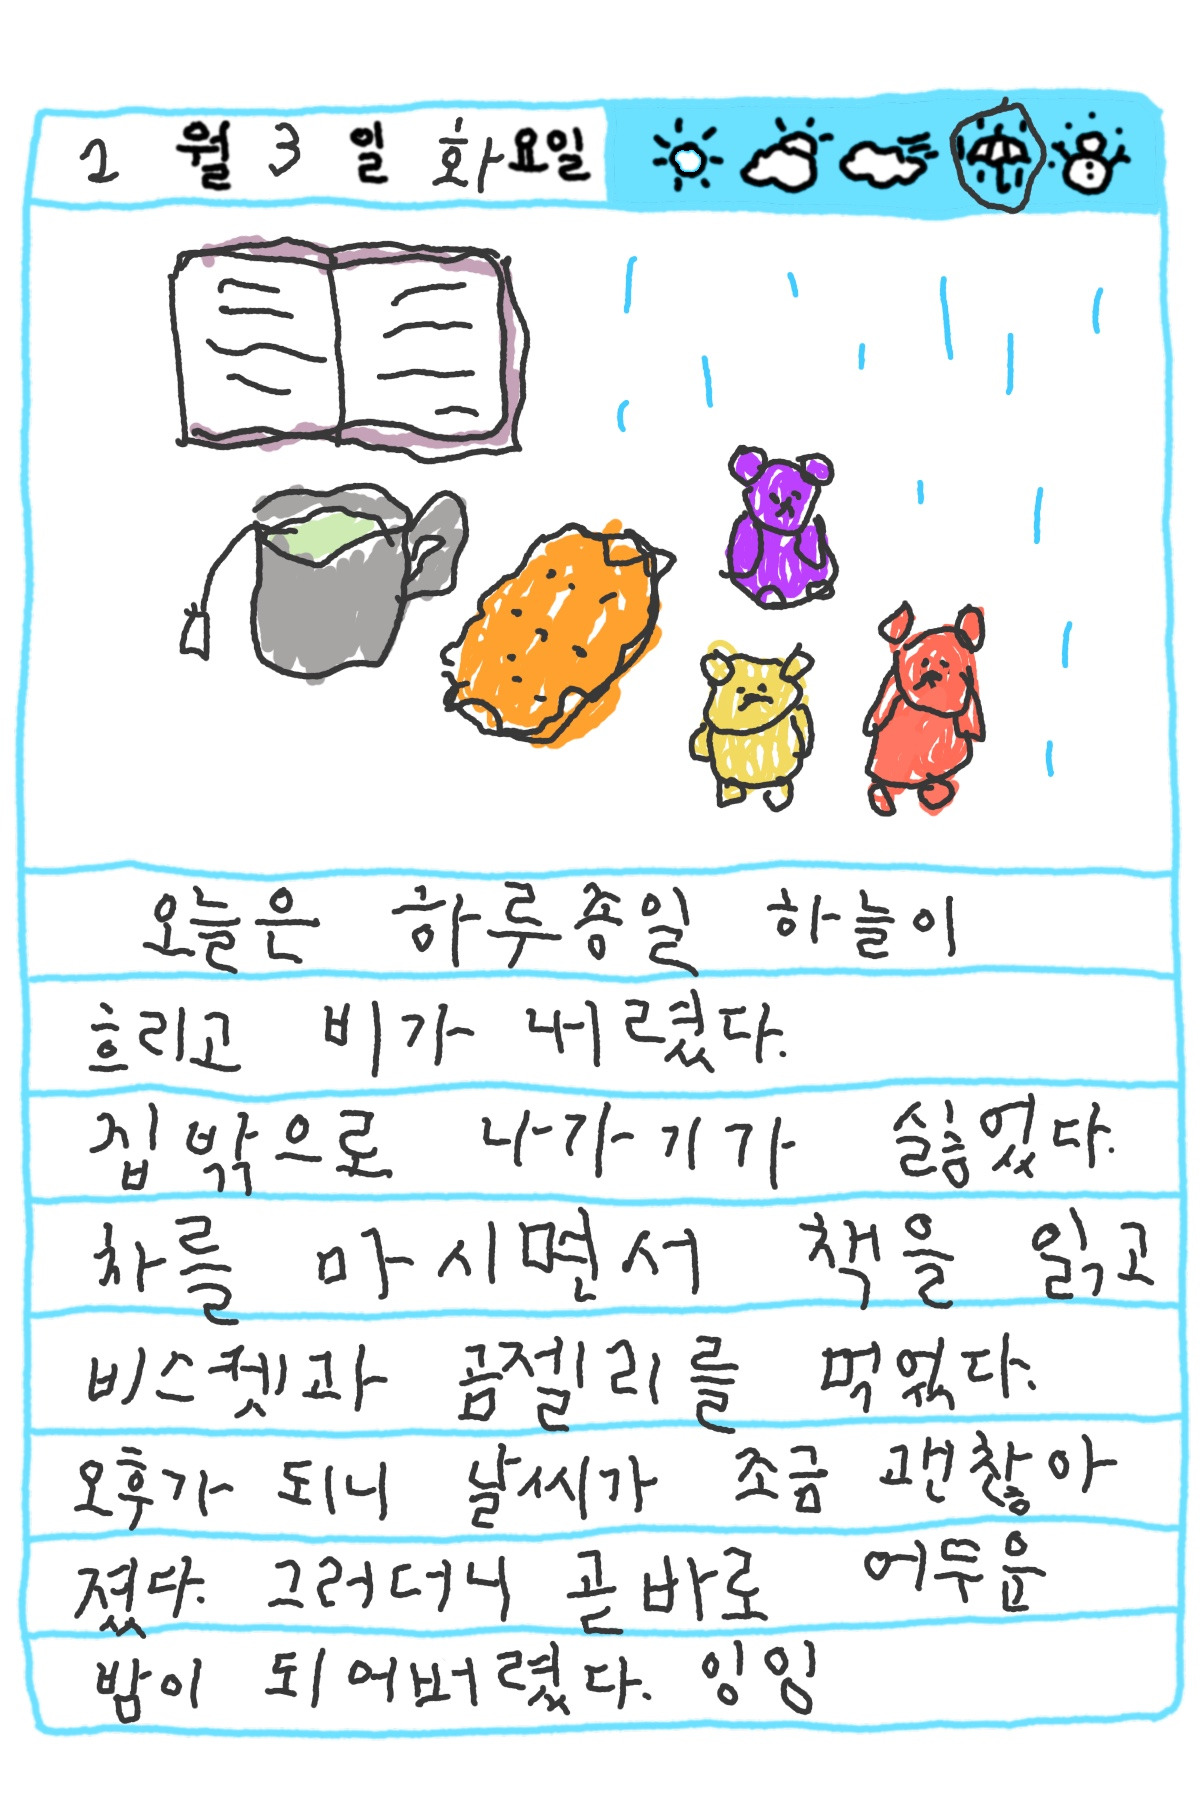 2월 3일 화요일
오늘은 하루종일 하늘이
흐리고 비가 내렸다.
집밖으로 나가기가 싫었다.
차를 마시면서 책을 읽고
비스켓과 곰젤리를 먹었다.
오후가 되니 날씨가 조금 괜찮아
졌다. 그러더니 곧바로 어두운
밤이 되어버렸다. 잉잉